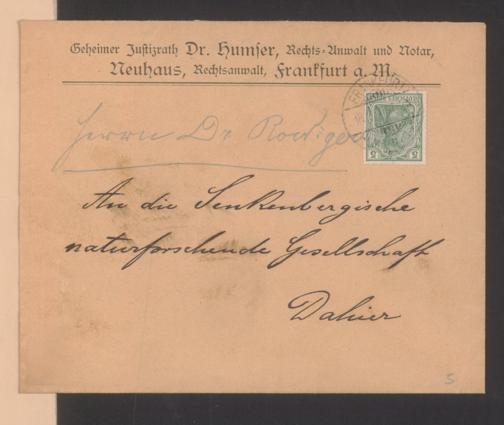 Geheimer Justizrath Dr. Humser, Rechts-Anwalt und Notar,
Neuhaus, Rechtsanwalt, Frankfurt a. M.
Herrn Dr Roediger
An die Senkenbergische
naturforschende Gesellschaft
Dahier
5